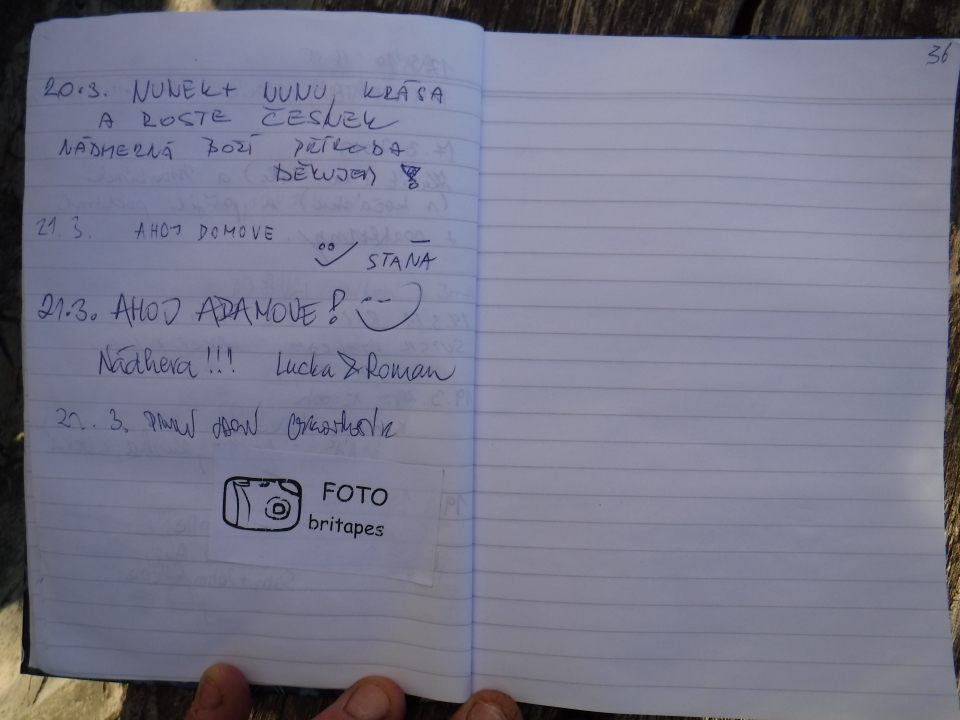 20.3. NUNEK + NUNU, KRÁSA
A ROSTE ČESNEK
NÁDHERNÁ BOŽÍ PŘÍRODA
DĚKUJEM
21.3. AHOJ DOMOVE
STAŇA
21.3. AHOJ ADAMOVE!
Nádhera!!! Lucka & Roman
21. 3. PRVNÍ
FOTO
britapes
36